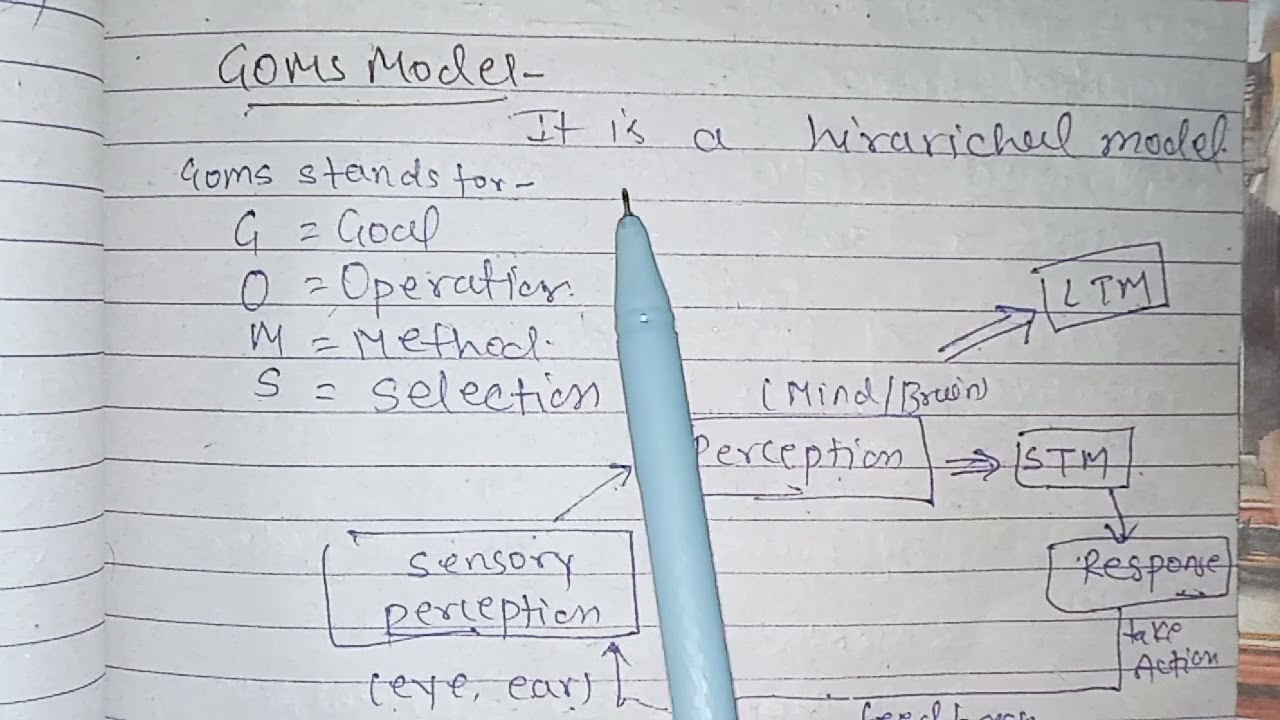 Goms Model-
It is a hirarichal model.
Goms stands for-
G = Goal
O = Operation.
M = Method.
S = Selection
LTM
(Mind/Brain)
Perception
STM
Sensory
perception
Response
(eye, ear)
take
Action